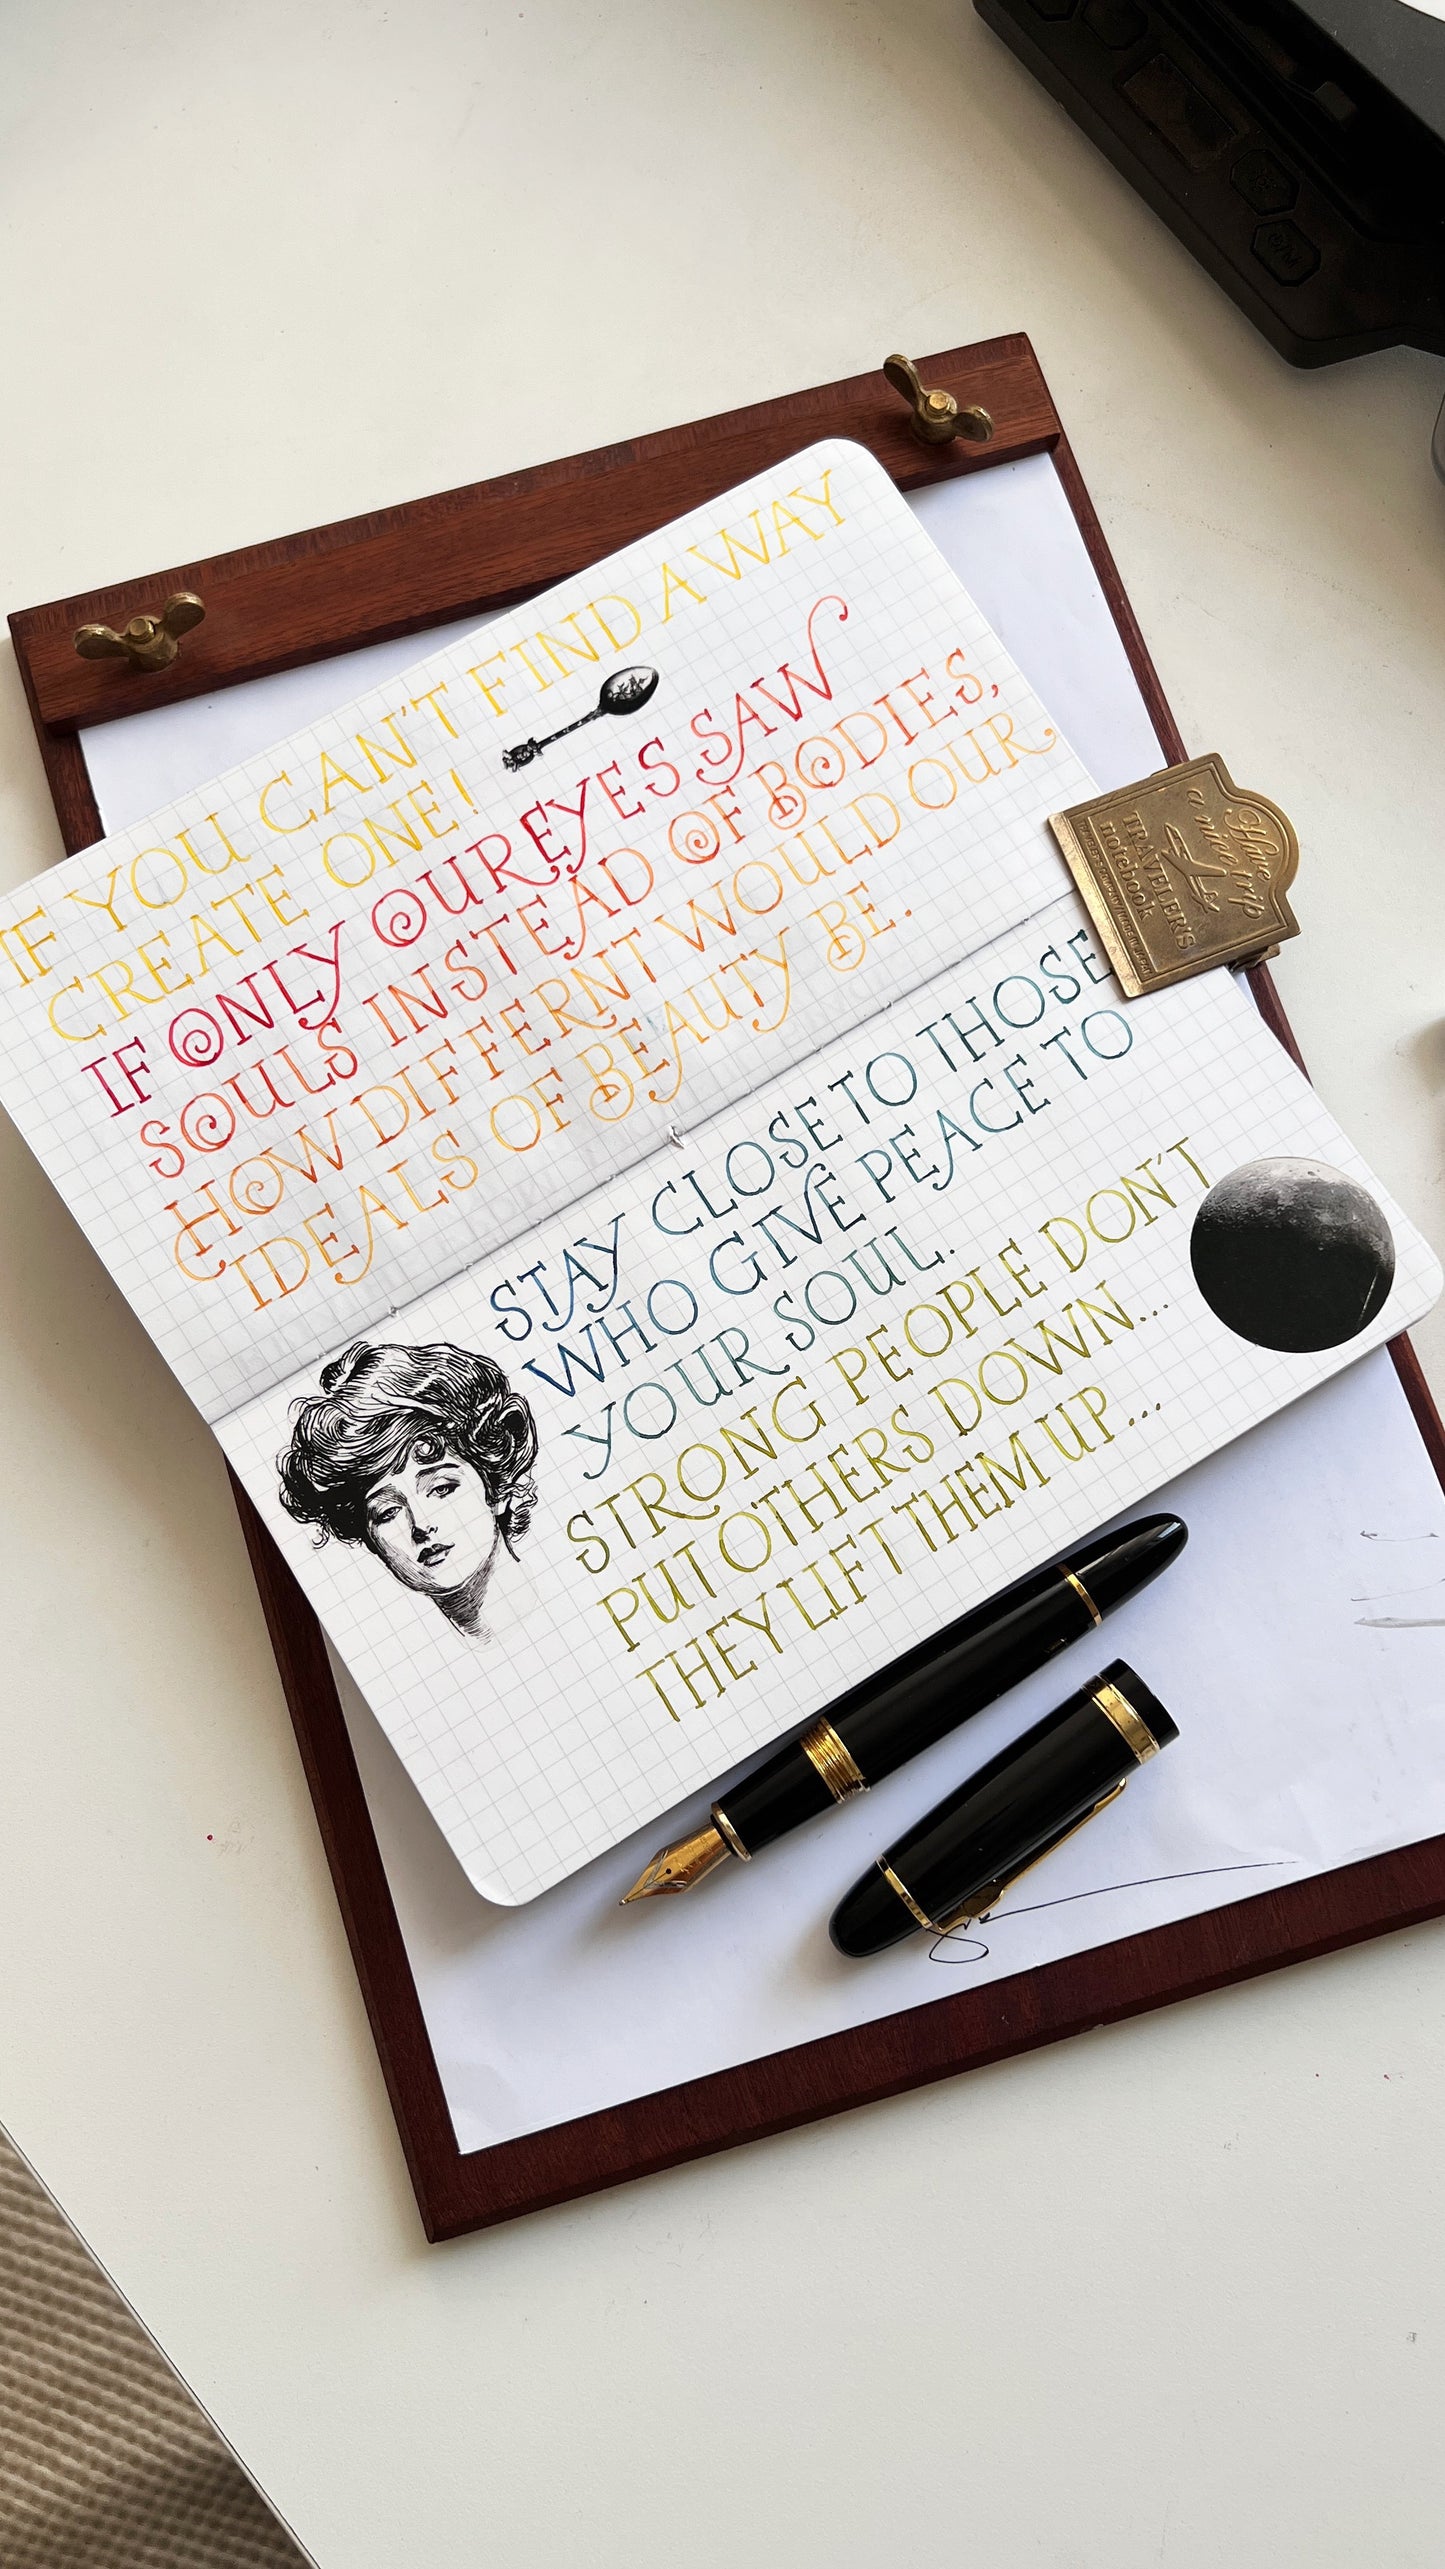 IF YOU CAN'T FIND A WAY
CREATE ONE!
IF ONLY OUR EYES SAW
SOULS INSTEAD OF BODIES,
HOW DIFFERNT WOULD OUR
IDEALS OF BEAUTY BE.
STAY CLOSE TO THOSE
WHO GIVE PEACE TO
YOUR SOUL.
STRONG PEOPLE DON'T
PUT OTHERS DOWN...
THEY LIFT THEM UP...
Have
a nice trip
TRAVELER'S
notebook